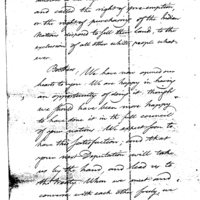 and called the right of pre-emption
or the right of purchasing of the Indian
Nations disposed to sell their land, to the
exclusion of all other white people what
ever.
Brothers. We have now opened our
hearts to you. We are happy in having
an opportunity of doing it, though
we should have been more happy
to have done it in the full council
of your nations. We expect soon to
have this satisfaction; and that
your next Deputation will take
us by the hand, and lead us to
the Treaty. When we meet and
converse with each other freely, we